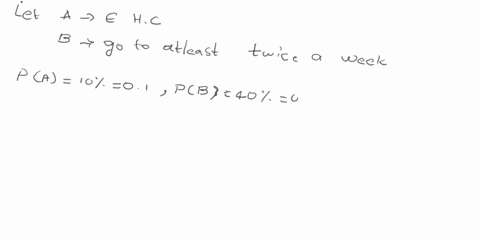 Let A → E H.C
B → go to atleast twice a week
P(A) = 10% = 0.1 , P(B) = 40% = 0